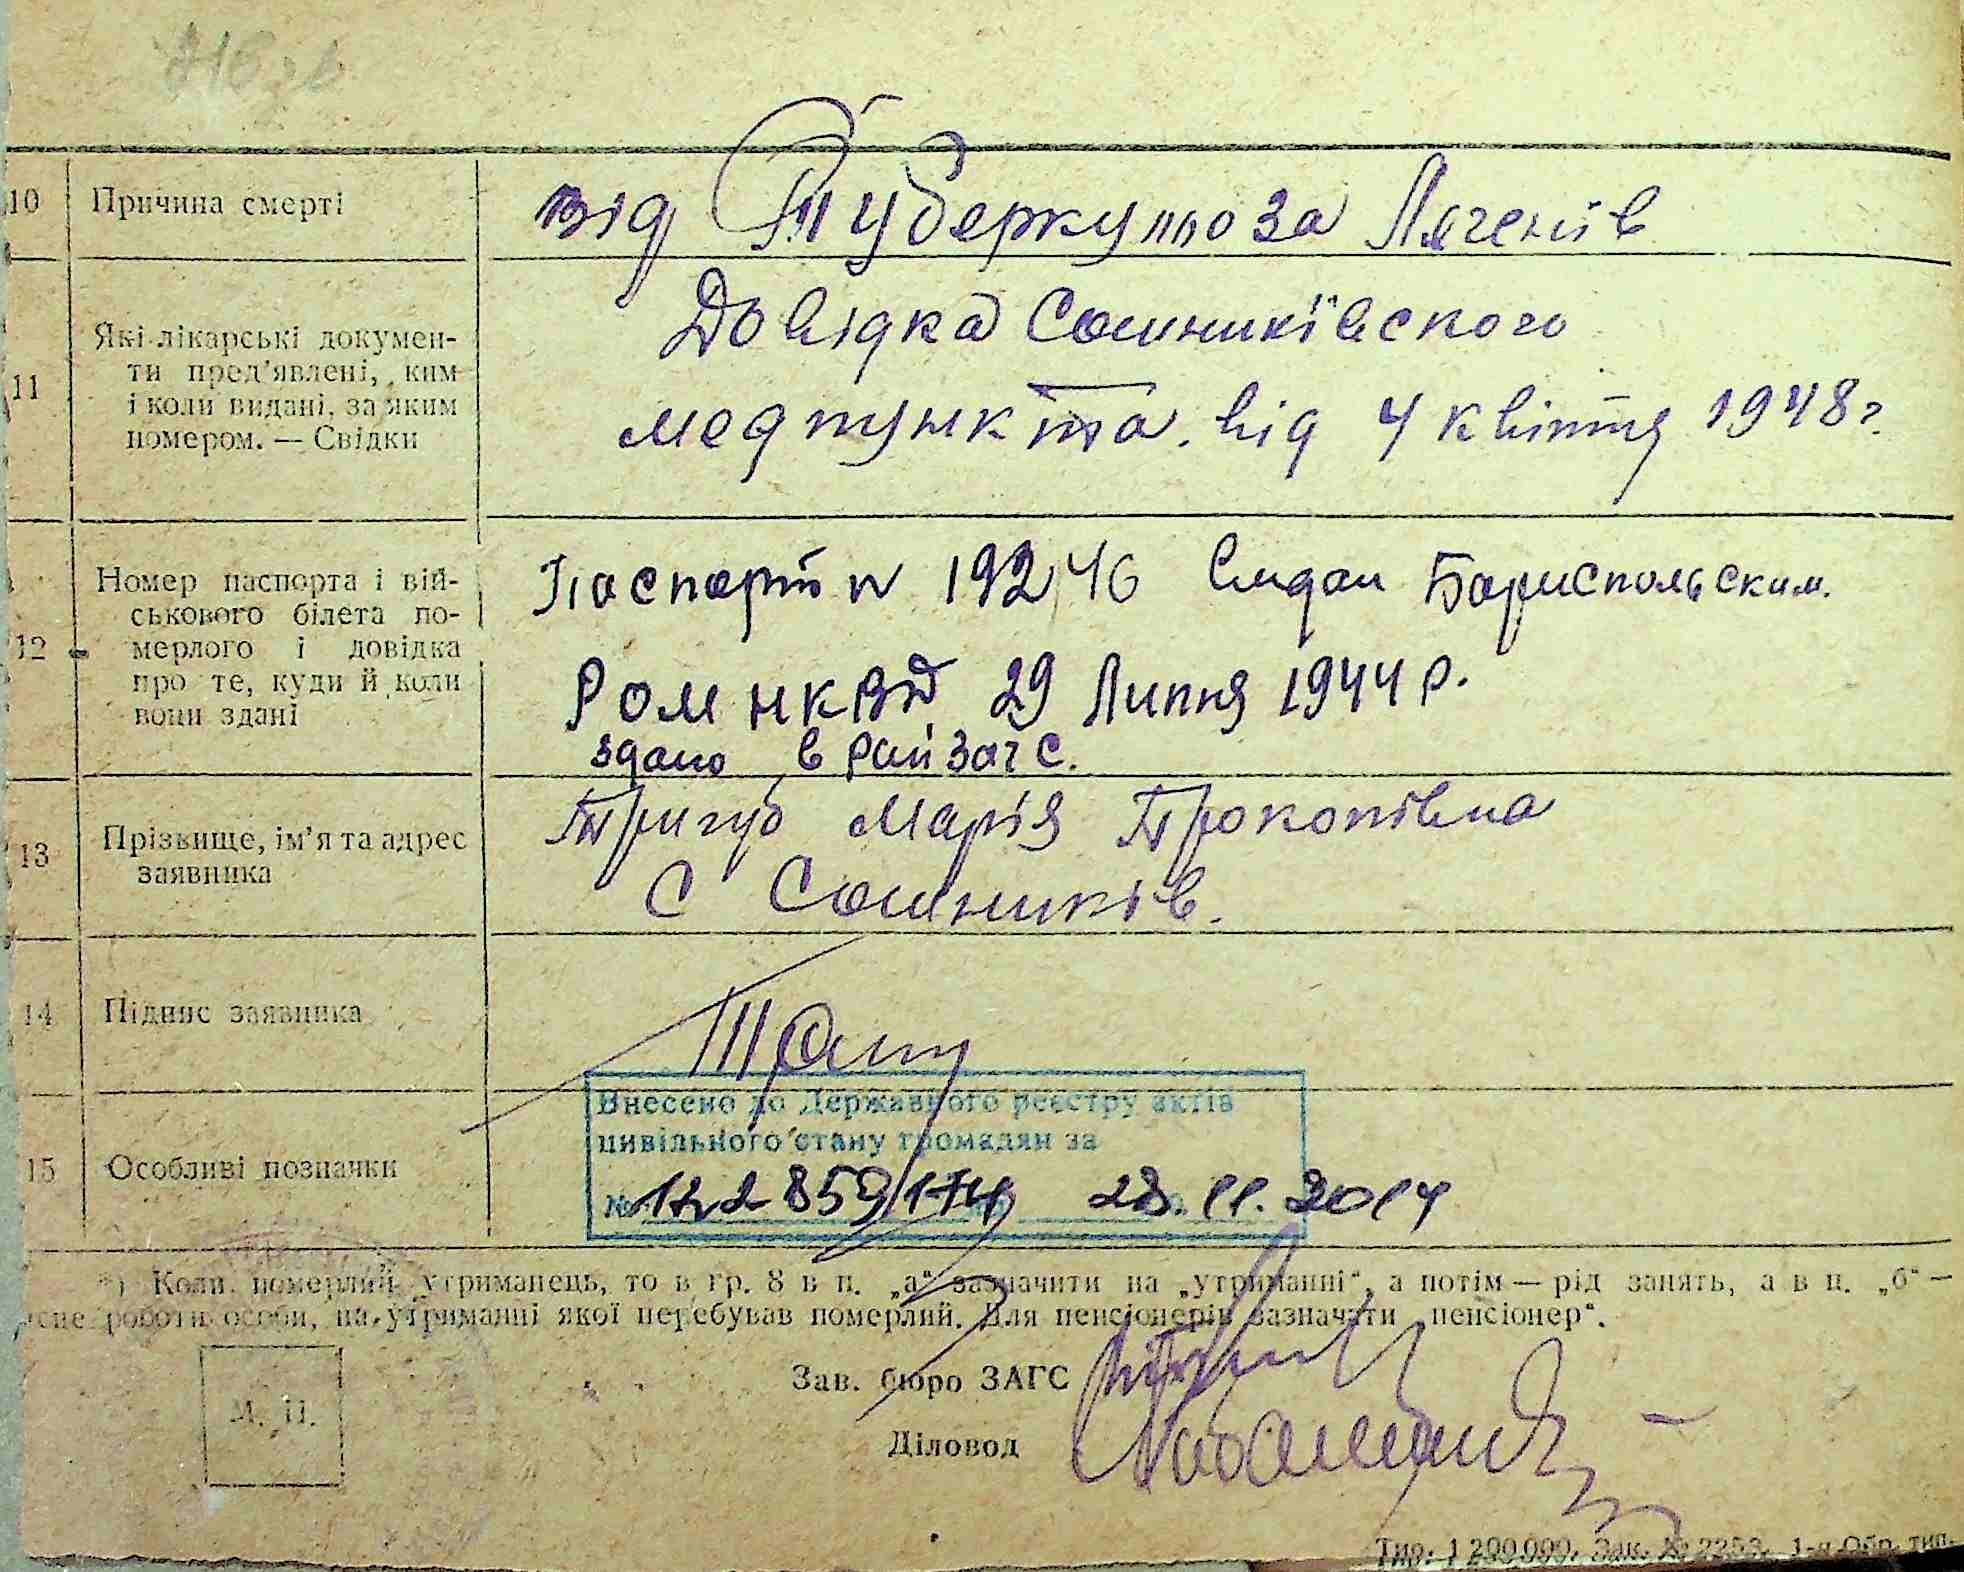 10 Причина смерті від Туберкульоза Лягенів
11 Які лікарські докумен-
ти пред'явлені, ким
і коли видані, за яким
номером. — Свідки
Довідка Сошниківского
медпункта. від 4 квітня 1948 г.
12 Номер паспорта і вій-
ськового білета по-
мерлого і довідка
про те, куди й коли
вони здані
Паспорт N 192246 Бориспольским.
Ром НКВД 29 Липня 1944 р.
здано в райзагс.
13 Прізвище, ім'я та адрес
заявника
Тригуб Марія Прокопівна
С Сошників.
14 Підпис заявника
15 Особливі позначки
Внесено до Державного реєстру актів
цивільного стану громадян за
№ 28.11.2014
*) Коли померлий утриманець, то в гр. 8 в п. „а“ зазначити на „утриманні“, а потім — рід занять, а в п. „б“ —
роботи особи, на утриманні якої перебував померлий. Для пенсіонерів зазначати „пенсіонер“.
М. П.
Зав. бюро ЗАГС
Діловод
Тир. 1 200 000. Зак. № 2253. 1-а Обр. тип.